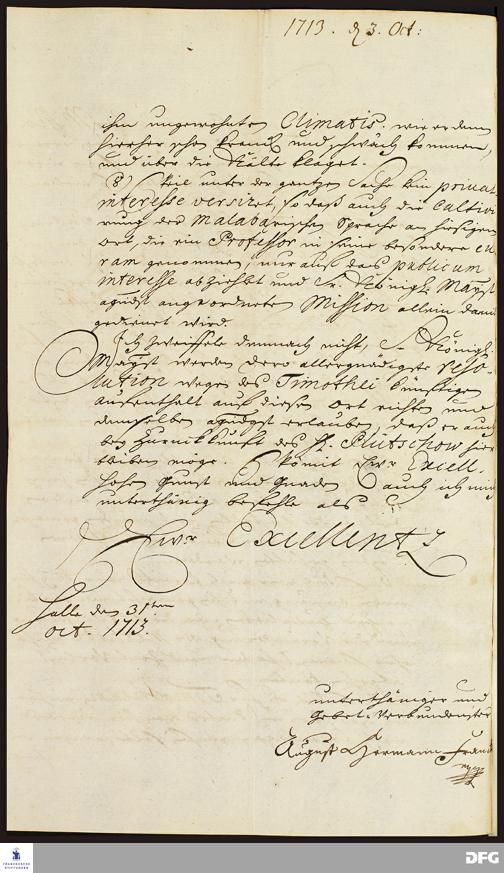 1713. d. 3. Oct:
ihm ungewohnten Climatis, wie er denn
hierher schon kranck und schwach kommen,
und über die Kälte klaget.
8) Weil unter der gantzen Sache kein privat
interesse versiret, so daß auch die Cultivi
rung der Malabarischen Sprache an hiesigen
Ort, die ein Professor in seine besondere cu
ram genommen, nur auf das publicum
interesse abziehlet und Sr. Königl. Mayst
angeordneten Mission allein damit
gedienet wird.
Ich zweiffele demnach nicht, Sr. Königl.
Mayst werden dero allergnädigste reso-
lution wegen des Timothei künftigen
Auffenthalt auf diesen Ort richten und
demselben allergdgst erlauben, daß er auch
bey Zurückkunft des H. Plütschow hier
bleiben möge. Womit Ewr Excell.
hohen Gunst und Gnaden auch ich mich
unterthänig befehle als
Ewr Excellentz
Halle den 31sten
Oct. 1713.
unterthäniger und
Gebet-Verbundenster
August Hermann Franck
FRANCKESCHE STIFTUNGEN
DFG